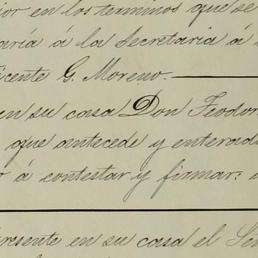 ior en los terminos que se
aría á la Secretaria á
icente G. Moreno.
en su casa Don Teodor
que antecede y enterad
r á contestar y firmar.
resente en su casa el Señ